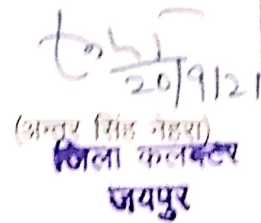 20/9/21
(अन्तर सिंह नेहरा)
जिला कलक्टर
जयपुर